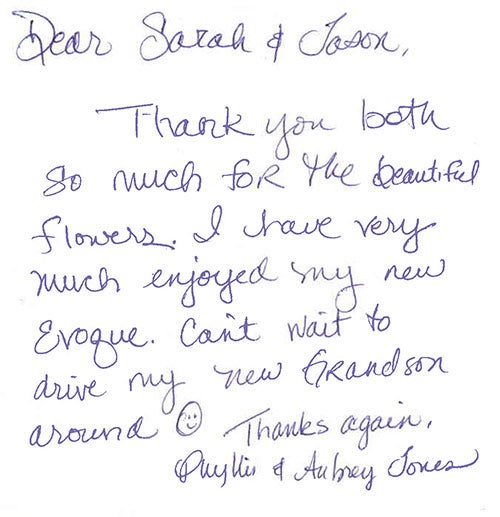 Dear Sarah & Jason,
Thank you both
so much for the beautiful
flowers. I have very
much enjoyed my new
Evoque. Can't wait to
drive my new Grandson
around ☺ Thanks again,
Phyllis & Aubrey Jones